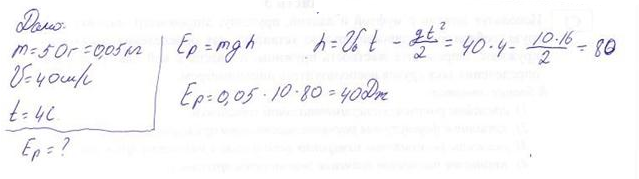 Дано:
m = 50г = 0,05кг
V = 40м/с
t = 4с
Eр = ?
Eр = mgh
h = V₀t - gt²/2 = 40·4 - 10·16/2 = 80
Eр = 0,05·10·80 = 40Дж